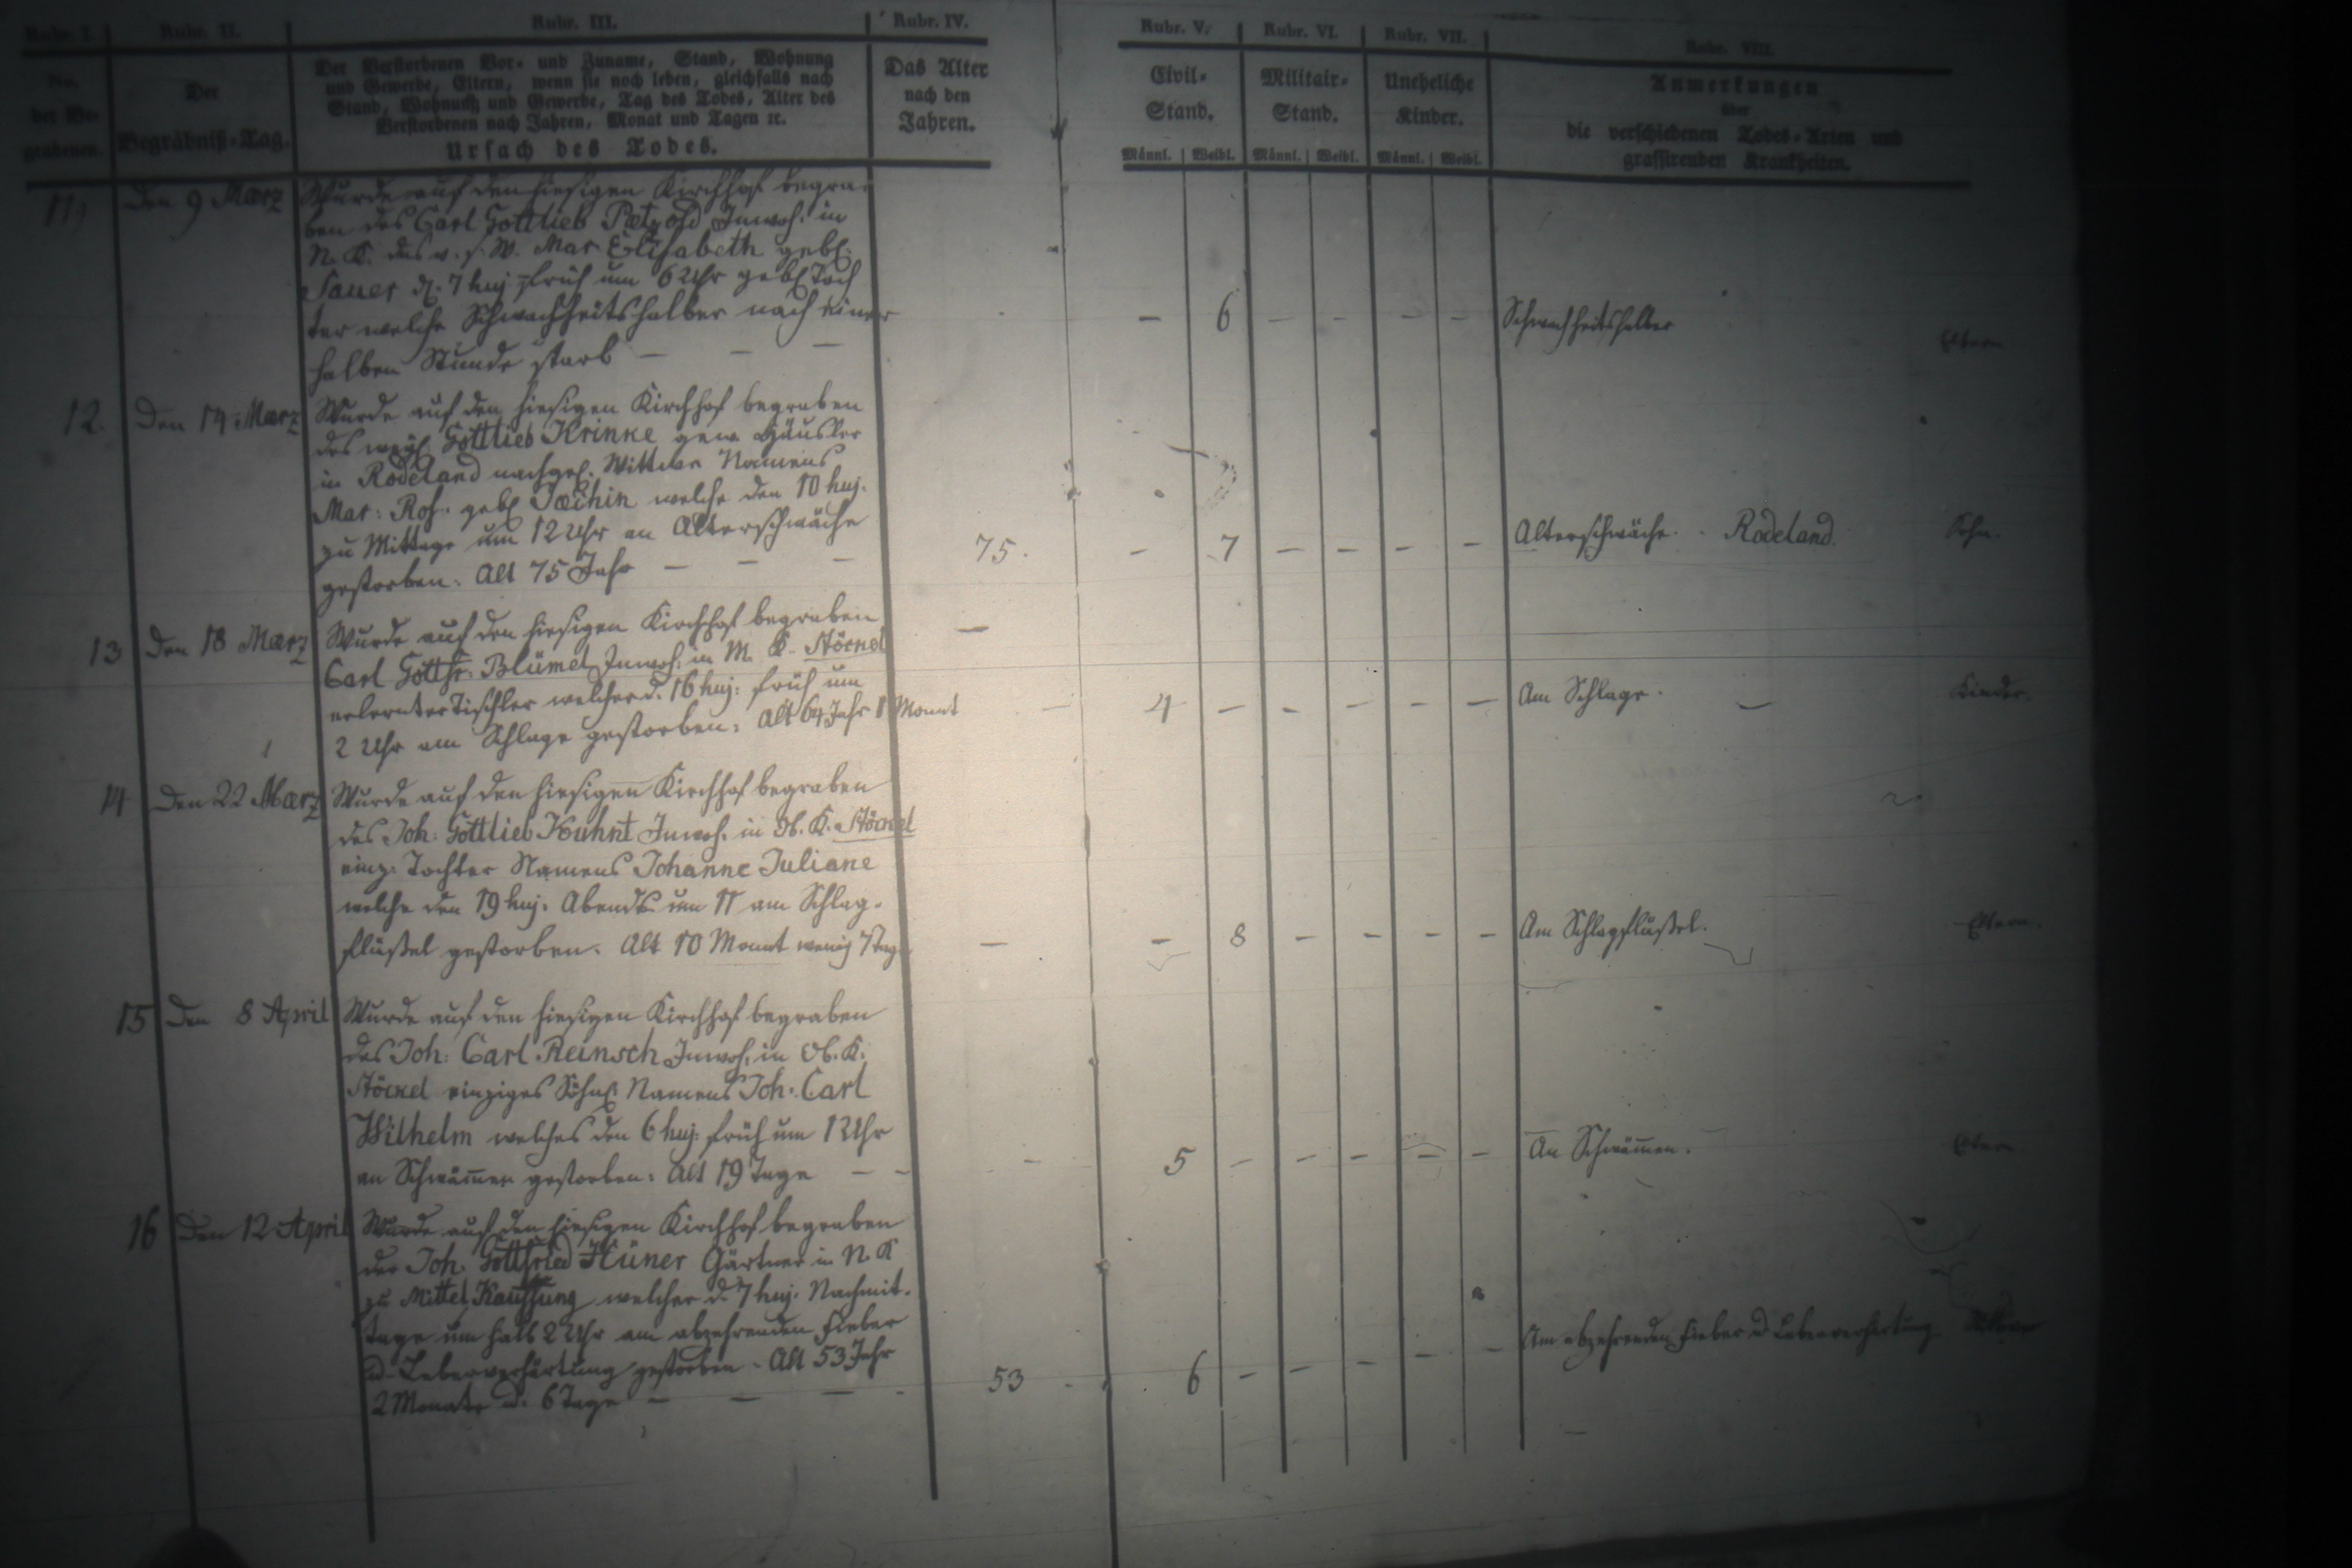 Rubr. I.
No.
der Be-
grabenen.
Rubr. II.
Der
Begräbniß-Tag.
Rubr. III.
Der Verstorbenen Vor- und Zuname, Stand, Wohnung
und Gewerbe, Eltern, wenn sie noch leben, gleichfalls nach
Stand, Wohnung und Gewerbe, Tag des Todes, Alter des
Verstorbenen nach Jahren, Monat und Tagen ꝛc.
Ursach des Todes.
Rubr. IV.
Das Alter
nach den
Jahren.
Rubr. V.
Civil-
Stand.
Männl. Weibl.
Rubr. VI.
Militair-
Stand.
Männl. Weibl.
Rubr. VII.
Uneheliche
Kinder.
Männl. Weibl.
Rubr. VIII.
Anmerkungen
über
die verschiedenen Todes-Arten und
grassirenden Krankheiten.
11) Den 9 Maerz Wurde auf den hiesigen Kirchhof begra-
ben des Carl Gottlieb Paetzold Inwoh. in
N. K. das v. s. W. Mar Elisabeth geb.
Sauer d. 7 huj. früh um 6 Uhr geb. Toch
ter welche Schwachheitshalber nach einer
halben Stunde starb — — —
— 6 — — — — Schwachheitshalber Eltern
12. Den 14 Maerz Wurde auf den hiesigen Kirchhof begraben
des weyl. Gottlieb Krinke gew. Häusler
in Rodeland nachgel. Wittwe Namens
Mar: Ros. geb. welche den 10 huj.
zu Mittage um 12 Uhr an Alterschwäche
gestorben. Alt 75 Jahr — — —
75. — 7 — — — — Alterschwäche. Rodeland. Sohn.
13 Den 18 Maerz Wurde auf den hiesigen Kirchhof begraben
Carl Gottfr: Blümel Inwoh. in M. K. Stöckel
erlernter Tischler welcher d. 16 huj: früh um
2 Uhr am Schlage gestorben: Alt 64 Jahr 1 Monat
4 — — — — — Am Schlage. — Kinder.
14 Den 22 Maerz Wurde auf den hiesigen Kirchhof begraben
des Joh: Gottlieb Kuhnt Inwoh. in Ob. K. Stöckel
einz: Tochter Namens Johanne Juliane
welche den 19 huj: Abends um 11 am Schlag-
flüßel gestorben. Alt 10 Monat wenig 7 Tage
— — 8 — — — — Am Schlagflüßel. Eltern.
15 Den 8 April Wurde auf den hiesigen Kirchhof begraben
des Joh: Carl Reinsch Inwoh. in Ob. K.
Stöckel einziges Söhnl. Namens Joh: Carl
Wilhelm welches den 6 huj: früh um 1 Uhr
an Schwämen gestorben: Alt 19 Tage — —
— 5 — — — — — An Schwämen. Eltern
16 Den 12 April Wurde auf den hiesigen Kirchhof begraben
der Joh: Gottfried Hüner Gärtner in N. K
zu Mittel Kauffung welcher d. 7 huj: Nachmit-
tags um halb 2 Uhr am abzehrenden Fieber
u. Leberverhärtung gestorben. Alt 53 Jahr
2 Monate u. 6 Tage — — — —
53 6 — — — — — Am abzehrenden Fieber u. Leberverhärtung